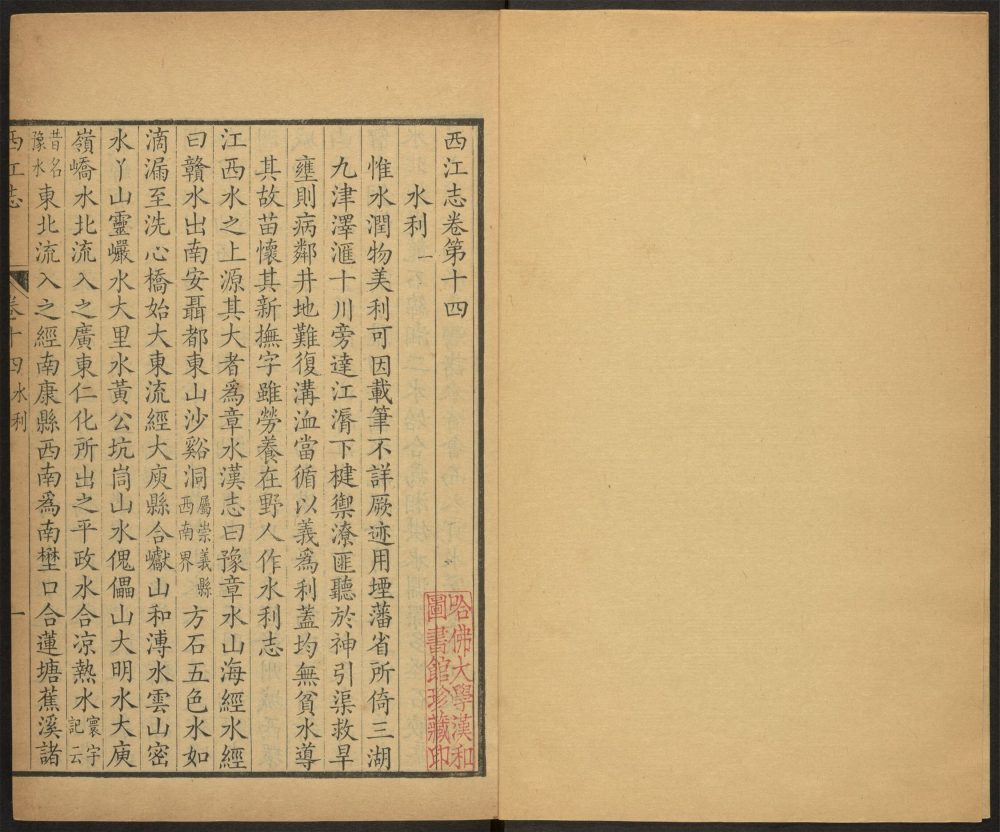 西江志卷第十四
水利一
惟水潤物美利可因載筆不詳厥迹用堙藩省所倚三湖
九津澤滙十川旁達江漘下楗禦潦匪聽於神引渠救旱
壅則病鄰井地難復溝洫當循以義爲利蓋均無貧水導
其故苗懷其新撫字雖勞養在野人作水利志
江西水之上源其大者爲章水漢志曰豫章水山海經水經
曰贛水出南安聶都東山沙谿洞屬崇義縣西南界方石五色水如
滴漏至洗心橋始大東流經大庾縣合巘山和溥水雲山密
水丫山靈巖水大里水黃公坑峝山水傀儡山大明水大庾
嶺嶠水北流入之廣東仁化所出之平政水合凉熱水寰宇記云
昔名豫水東北流入之經南康縣西南爲南壄口合蓮塘蕉溪諸
西江志
卷十四水利
一
哈佛大學漢和
圖書館珍藏印